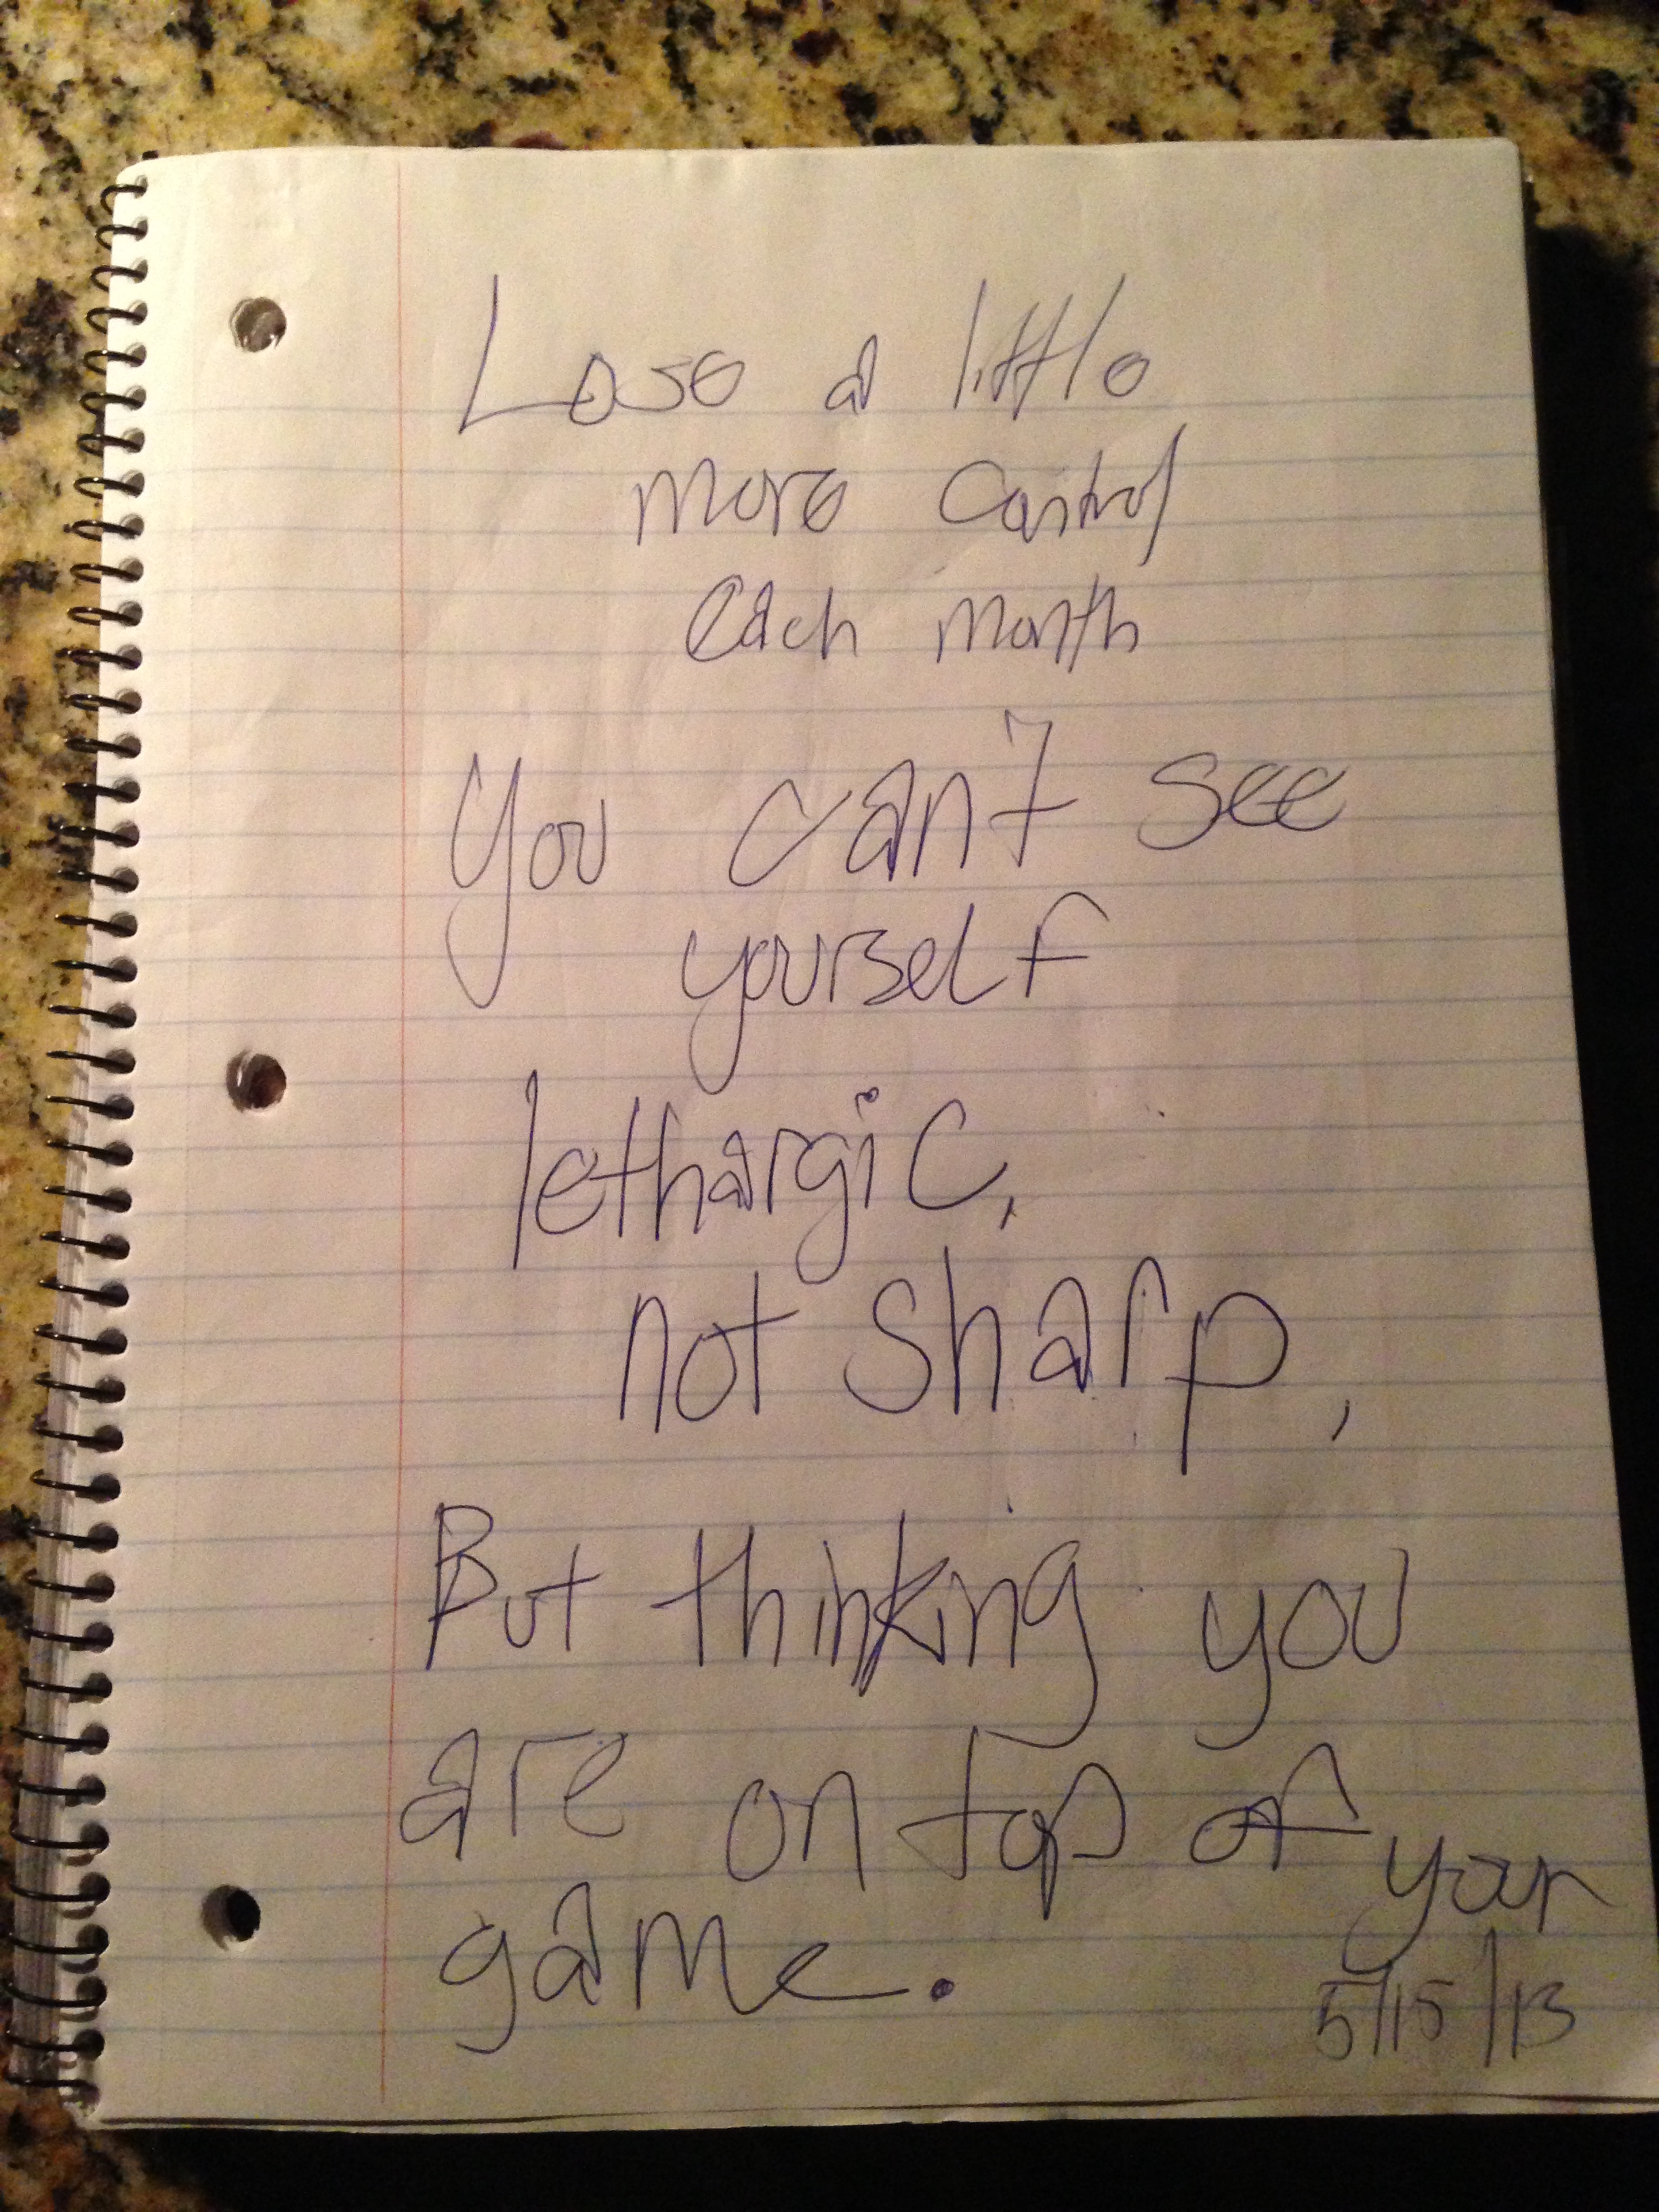 Lose a little
more control
each month
You can't see
yourself
lethargic,
not sharp,
But thinking you
are on top of your
game.
5/15/13